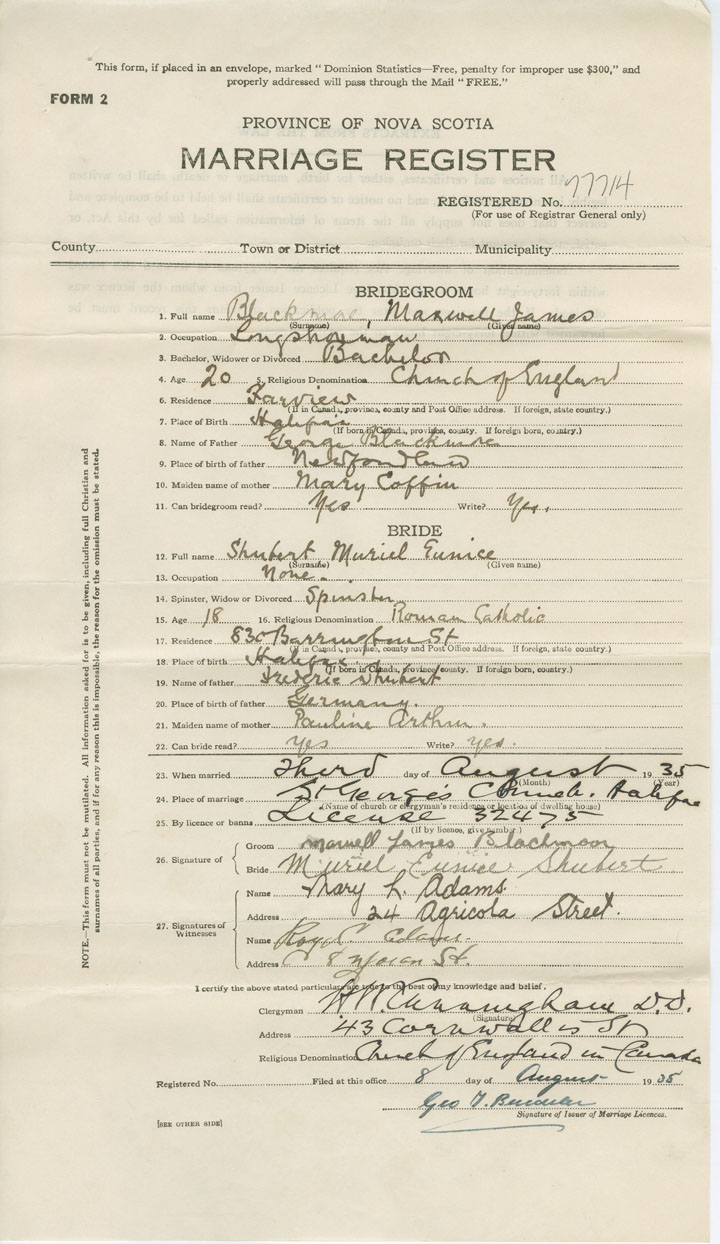 This form, if placed in an envelope, marked “ Dominion Statistics—Free, penalty for improper use $300,” and
properly addressed will pass through the Mail “ FREE.”
FORM 2
PROVINCE OF NOVA SCOTIA
MARRIAGE REGISTER
REGISTERED No. 77714
(For use of Registrar General only)
County Town or District Municipality
BRIDEGROOM
1. Full name Blackmoe, Maxwell James
(Surname) (Given name)
2. Occupation Longshoreman
3. Bachelor, Widower or Divorced Bachelor
4. Age 20 5. Religious Denomination Church of England
6. Residence Farview
(If in Canada, province, county and Post Office address. If foreign, state country.)
7. Place of Birth Halifax
(If born in Canada, province, county. If foreign born, country.)
8. Name of Father George Blackmore
9. Place of birth of father Newfoundland
10. Maiden name of mother Mary Coffin
11. Can bridegroom read? Yes Write? Yes.
BRIDE
12. Full name Shubert Muriel Eunice
(Surname) (Given name)
13. Occupation None.
14. Spinster, Widow or Divorced Spinster
15. Age 18 16. Religious Denomination Roman Catholic
17. Residence 830 Barrington St
(If in Canada, province, county and Post Office address. If foreign, state country.)
18. Place of birth Halifax
(If born in Canada, province, county. If foreign born, country.)
19. Name of father Frederic Shubert
20. Place of birth of father Germany.
21. Maiden name of mother Pauline Arthur.
22. Can bride read? yes Write? yes.
23. When married third day of August 1935
(Month) (Year)
24. Place of marriage St George's Church. Halifax
(Name of church or clergyman's residence or location of dwelling house)
25. By licence or banns License 32475
(If by licence, give number.)
26. Signature of
Groom Maxwell James Blackmoor
Bride Muriel Eunice Shubert
27. Signatures of Witnesses
Name Mary L. Adams
Address 24 Agricola Street.
Name Adams.
Address St.
I certify the above stated particulars are true to the best of my knowledge and belief.
Clergyman H W. Cunningham D.D.
(Signature)
Address 43 Cornwallis St
Religious Denomination Church of England in Canada
Registered No. Filed at this office 8 day of August 1935
Geo
Signature of Issuer of Marriage Licences.
[SEE OTHER SIDE]
NOTE.—This form must not be mutilated. All information asked for is to be given, including full Christian and
surnames of all parties, and if for any reason this is impossible, the reason for the omission must be stated.